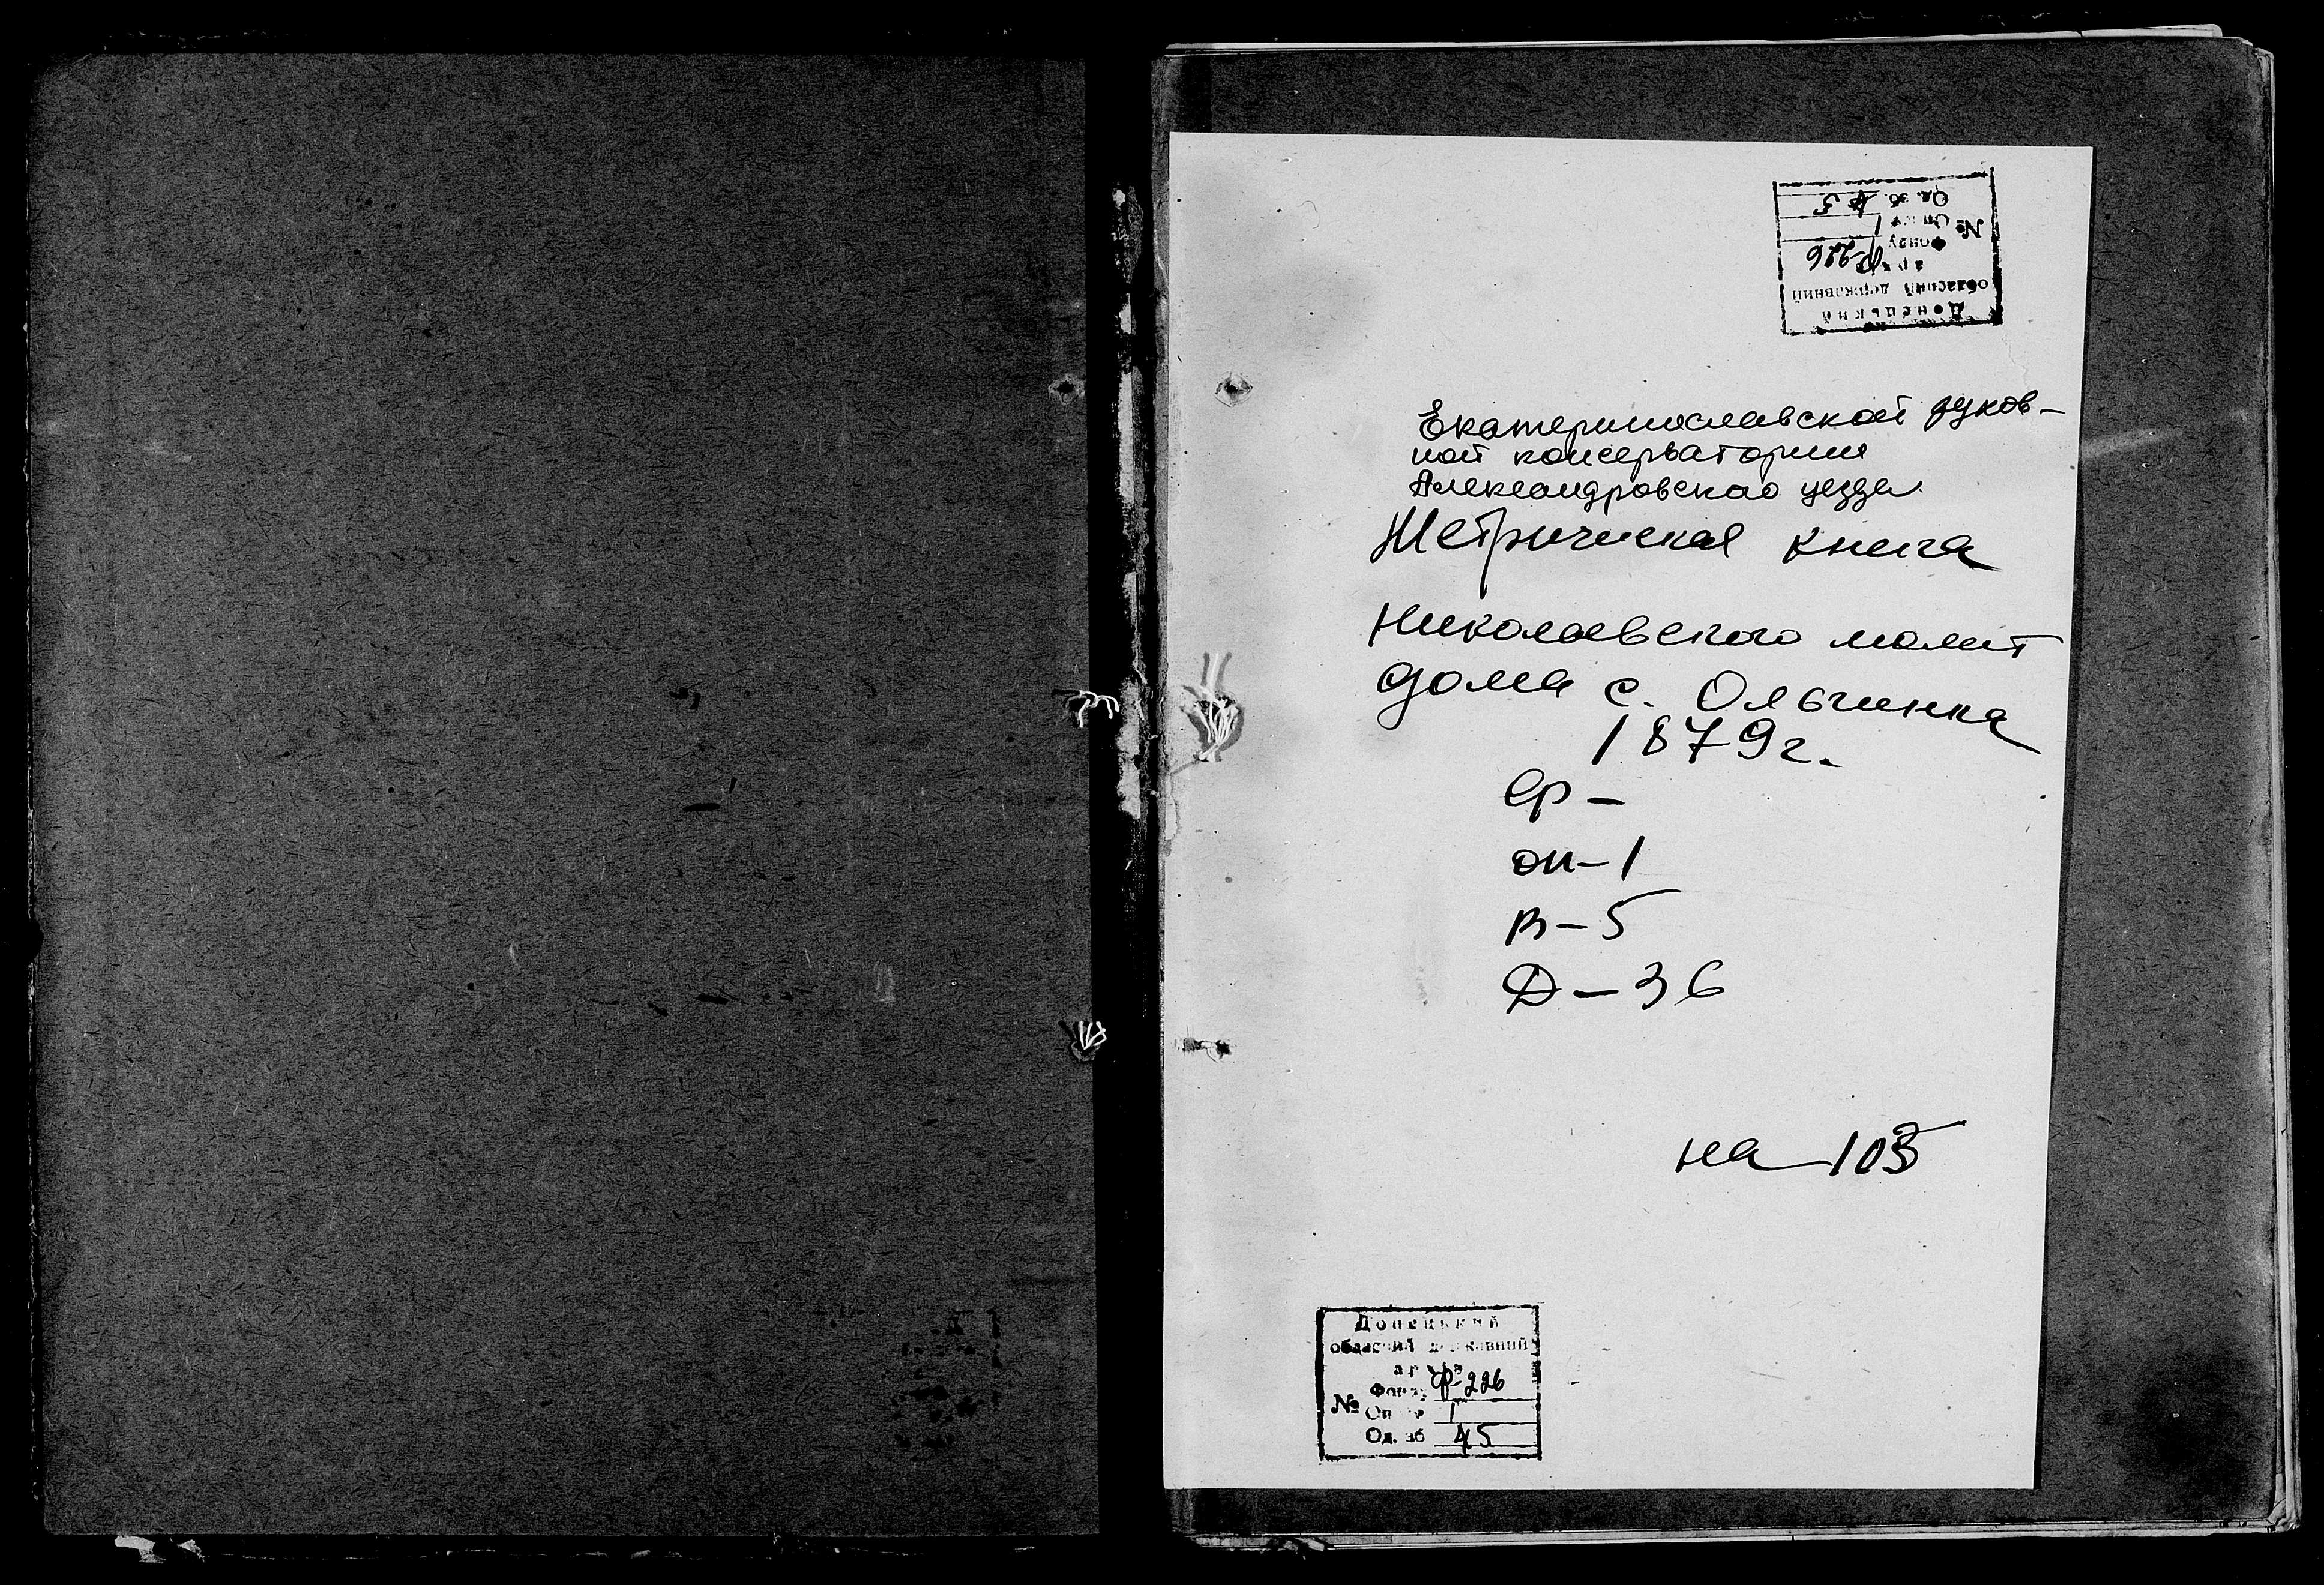 Донецький
обласний державний
арх
Фонду Ф-226
№ Опису 1
Од. зб. 45
Екатеринославской духов-
ной консерватории
Александровского уезда
Метрическая книга
Николаевского молит
дома с. Ольгинка
1879г.
ф-
оп-1
в-5
Д-36
на 103
Донецький
обласний державний
архів
Фонду Ф-226
№ Опису 1
Од. зб 45